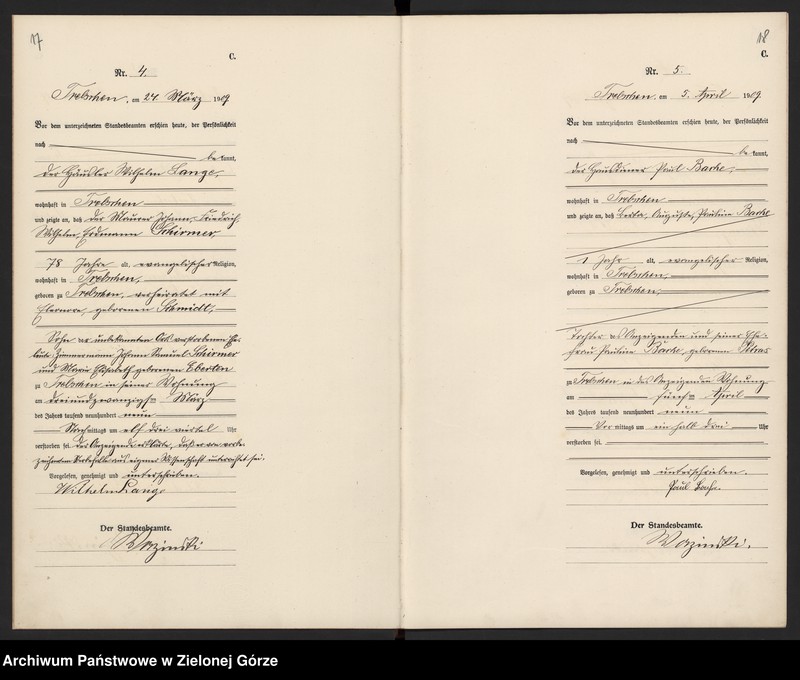 17
C.
Nr. 4.
Trebschen, am 24. März 1909
Vor dem unterzeichneten Standesbeamten erschien heute, der Persönlichkeit
nach
bekannt,
der Häusler Wilhelm Lange,
wohnhaft in Trebschen
und zeigte an, daß der Maurer Johann, Friedrich,
Wilhelm, Erdmann Schirmer,
78 Jahre alt, evangelischer Religion,
wohnhaft in Trebschen,
geboren zu Trebschen, verheiratet mit
Eleonore, geborenen Schmidt,
Sohn der unbekannten Orts verstorbenen Ehe-
leute Zimmermann Johann Samuel Schirmer
und Marie Elisabeth geborenen
zu Trebschen in seiner Wohnung
am dreiundzwanzigsten März
des Jahres tausend neunhundert neun
Nachmittags um elf drei viertel Uhr
verstorben sei. Der Anzeigende erklärte, daß er von vorbe-
zeichnetem Sterbefalle aus eigener Wissenschaft unterrichtet sei.
Vorgelesen, genehmigt und unterschrieben.
Wilhelm Lange
Der Standesbeamte.
18
C.
Nr. 5.
Trebschen, am 5. April 1909
Vor dem unterzeichneten Standesbeamten erschien heute, der Persönlichkeit
nach
bekannt,
der Hausdiener Paul Bache,
wohnhaft in Trebschen
und zeigte an, daß Berta, Auguste, Pauline Bache
1 Jahr alt, evangelischer Religion,
wohnhaft in Trebschen,
geboren zu Trebschen,
Tochter des Anzeigenden und seiner Ehe-
frau Pauline Bache, geborenen
zu Trebschen in des Anzeigenden Wohnung
am fünften April
des Jahres tausend neunhundert neun
Vormittags um ein halb drei Uhr
verstorben sei.
Vorgelesen, genehmigt und unterschrieben.
Paul Bache.
Der Standesbeamte.
Archiwum Państwowe w Zielonej Górze